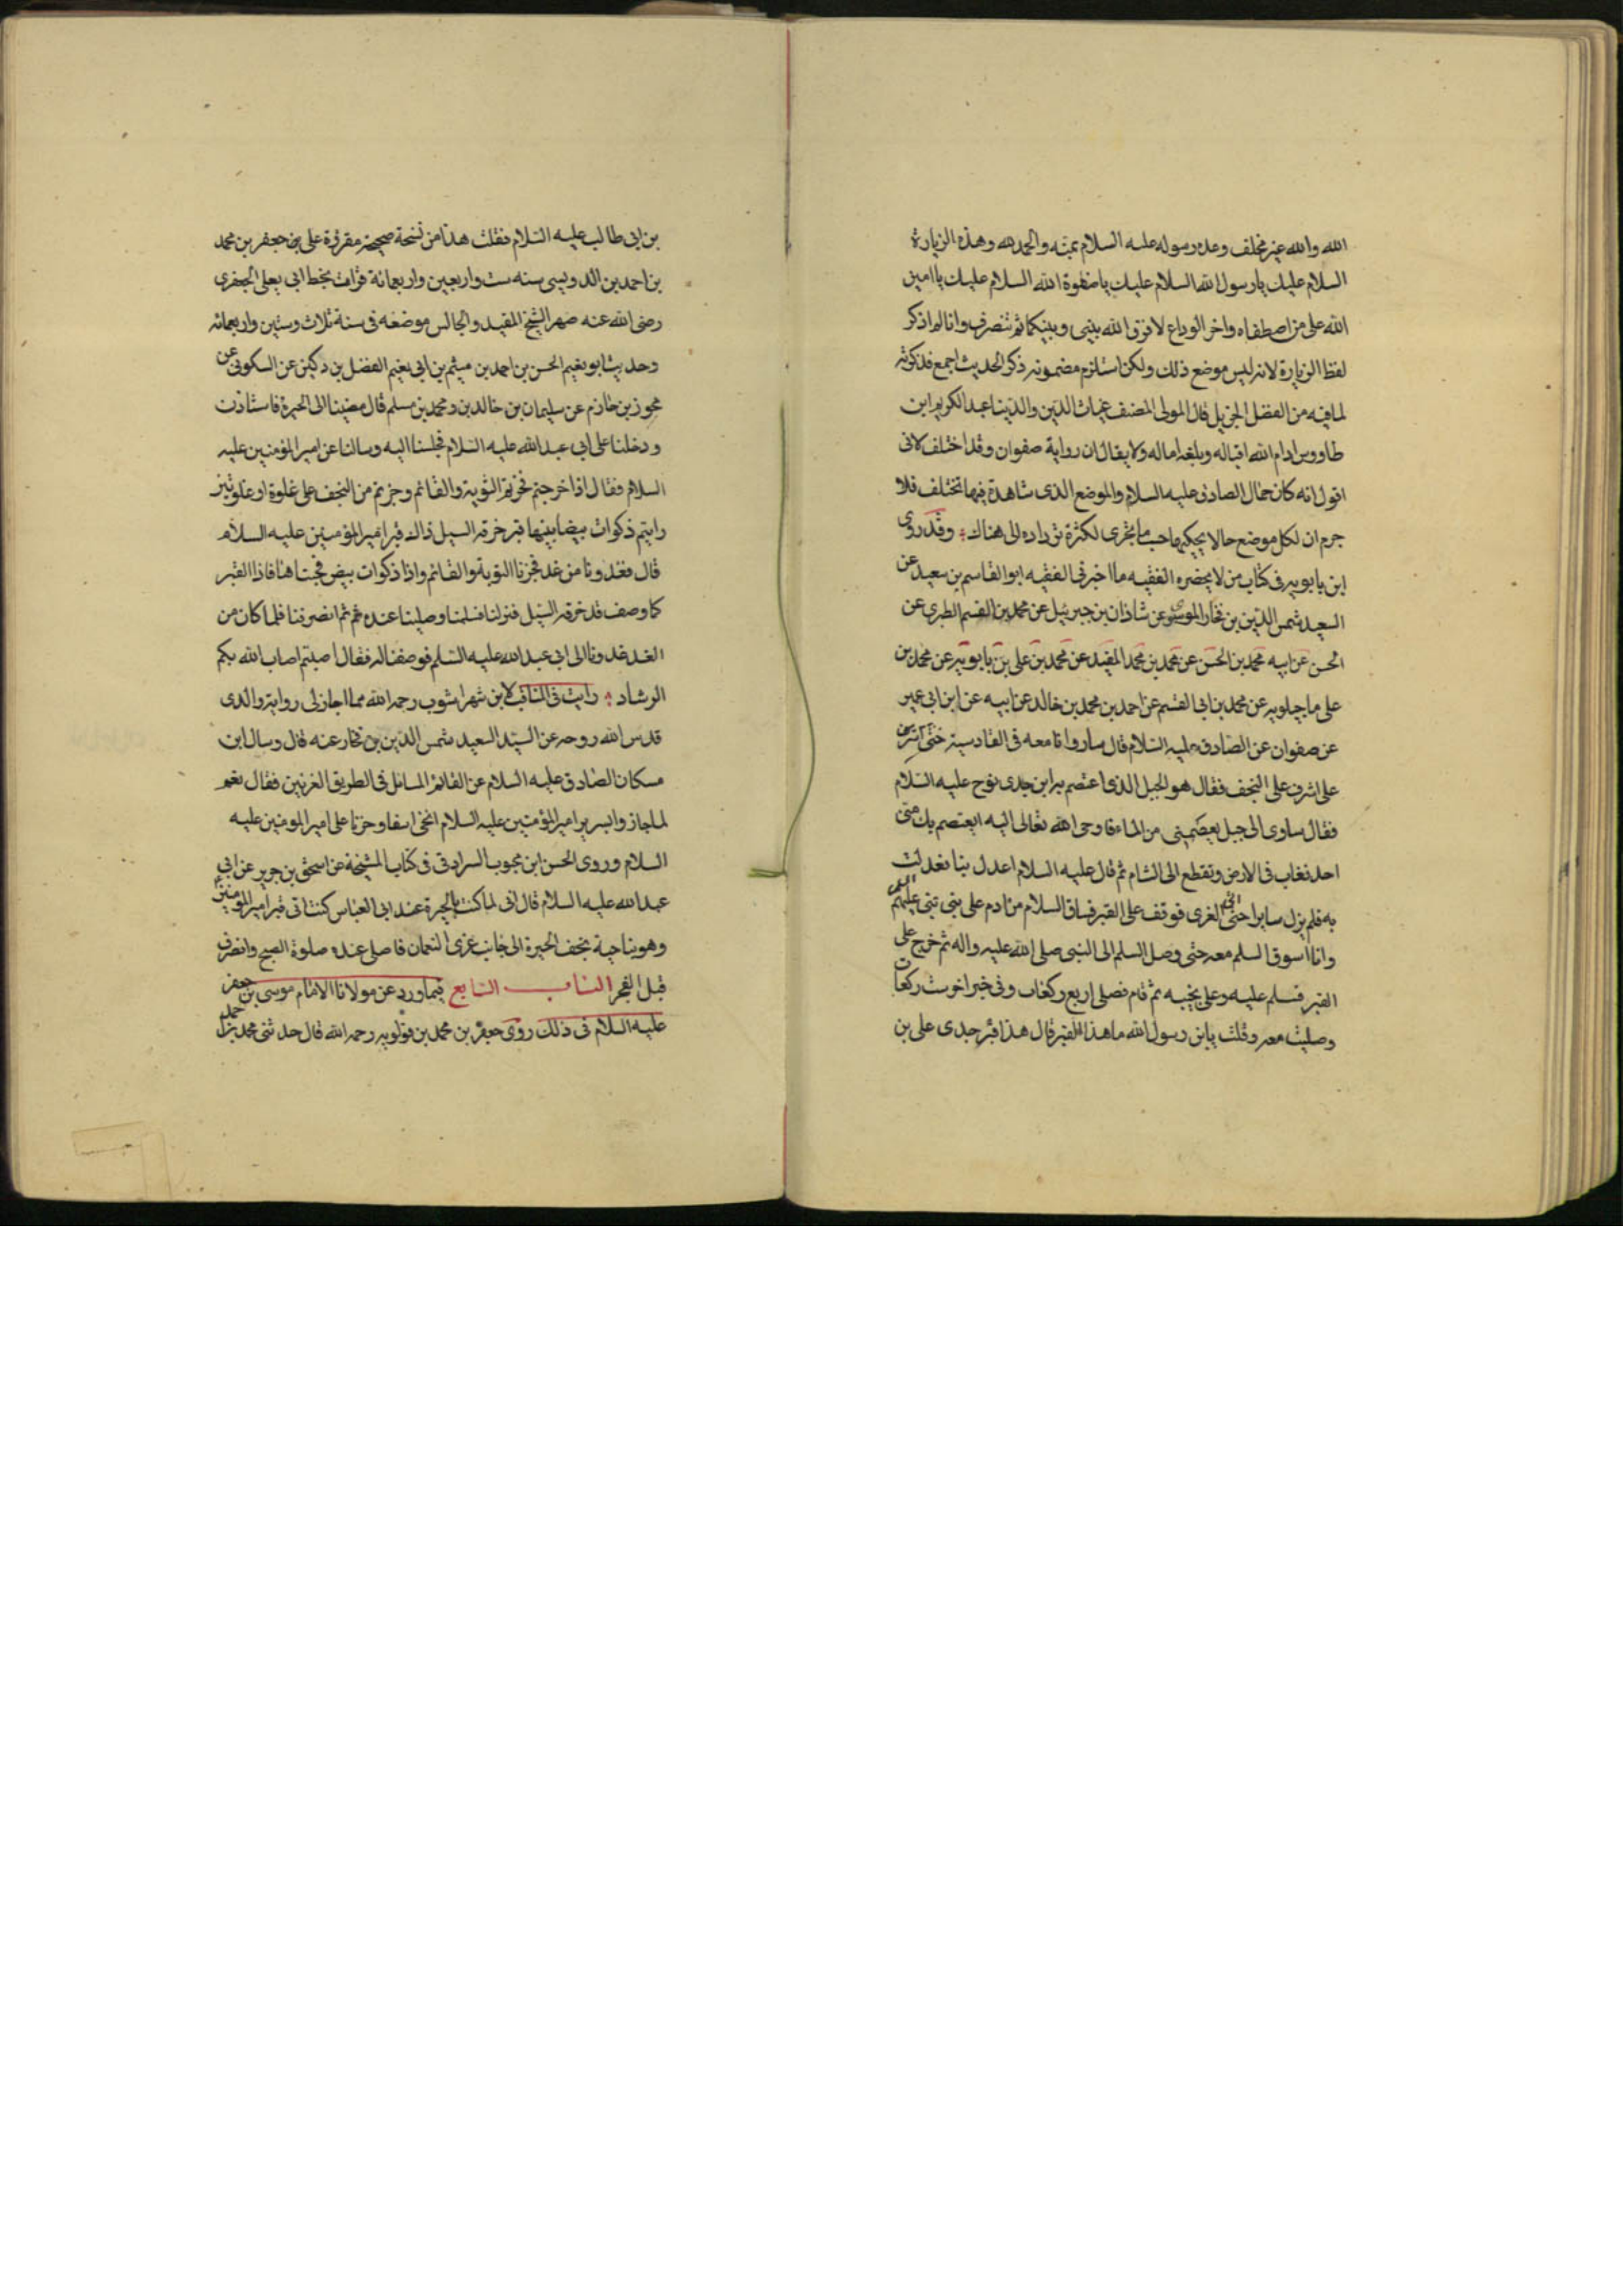 الله والله غير مخلف وعده رسوله عليه السلام بمنه والحمد لله وهذه الزيارة
السلام عليك يارسول الله السلام عليك ياصفوة الله السلام عليك ياامين
الله على من اصطفاه واخر الوداع لا فرق الله بينى وبينكما ثم تنصرف وانا لم اذكر
لفظ الزيارة لانه ليس موضع ذلك ولكن استلزم مضمونه ذكر الحديث اجمع فذكرته
لما فيه من الفضل الجزيل قال المولى المصنف غياث الدين والدينا عبد الكريم ابن
طاووس ادام الله اقباله وبلغه اماله ولا يقال ان رواية صفوان وقد اختلف لانى
اقول انه كان جمال الصادق عليه السلام والموضع الذى شاهدة فيها تختلف فلا
جرم ان لكل موضع حالا يحكيها حسب ما يجرى لكثرة ترداده الى هناك وقد روى
ابن بابويه فى كتاب من لا يحضره الفقيه ما اخبرنى الفقيه ابو القاسم بن سعيد عن
السعيد شمس الدين بن فخار الموسوى عن شاذان بن جبرئيل عن محمد بن القسم الطبرى عن
الحسن عن ابيه محمد بن الحسن عن محمد بن محمد المفيد عن محمد بن على بن بابويه عن محمد بن
على ماجيلويه عن محمد بن ابى القسم عن احمد بن محمد بن خالد عن ابيه عن ابن ابى عمير
عن صفوان عن الصادق عليه السلام قال ساروا نا معه فى القادسية حتى اشرف
على اشرف على النجف فقال هو الجبل الذى اعتصم به ابن جدى نوح عليه السلام
فقال ساوى الى جبل يعصمنى من الماء فاوحى الله تعالى اليه ايعتصم بك منى
احد فغاب فى الارض وتقطع الى الشام ثم قال عليه السلام اعدل بنا فعدلت
به فلم يزل سايرا حتى اتى الغرى فوقف على القبر فساق السلام من ادم على نبى نبى عليهم السلم
وانا اسوق السلم معه حتى وصل السلم الى النبى صلى الله عليه واله ثم خرج على
القبر فسلم عليه وعلى نحيبه ثم قام فصلى اربع ركعات وفى خبر اخر ست ركعات
وصليت معه وقلت يابن رسول الله ما هذا القبر قال هذا قبر جدى على بن
بن ابى طالب عليه السلام فقلت هذا من نسخة صحيحة مقروة على بن جعفر بن محمد
بن احمد بن الدويسى سنه ست واربعين واربعمائة قرات بخط ابى يعلى الجعفرى
رضى الله عنه صهر الشيخ المفيد والجالس موضعه فى سنة ثلاث وستين واربعمائه
وحديث ابو نعيم الحسن بن احمد بن ميثم بن ابى نعيم الفضل بن دكين عن السكونى عن
محوز بن خازم عن سليمان بن خالد بن ومحمد بن مسلم قال مضينا الى الحيرة فاستاذنت
ودخلنا على ابى عبد الله عليه السلام فجلسنا اليه وسالنا عن امير المؤمنين عليه
السلام فقال اذا خرجتم فجزتم الثوية والقائم وجزتم من النجف على غلوة او غلوتين
رايتم ذكوات بيضا بينها قبر خرقه السيل ذاك قبر امير المؤمنين عليه السلام
قال فغدونا من غد فجزنا الثوية والقائم واذا ذكوات بيض فجئناها فاذا القبر
كما وصف قد خرقه السيل فنزلنا فسلمنا وصلينا عنده ثم ثم انصرفنا فلما كان من
الغد غدونا الى ابى عبد الله عليه السلم فوصفنا له فقال اصبتم اصاب الله بكم
الرشاد رايت فى المناقب لابن شهراشوب رحمه الله مما اجاز لى روايته والدى
قدس الله روحه عن السيد السعيد شمس الدين بن فخار عنه قال وسال ابن
مسكان الصادق عليه السلام عن القائم المائل فى الطريق الغريين فقال نعم
لما جاز وابسرير امير المؤمنين عليه السلام انحنى اسفا وحزنا على امير المومنين عليه
السلام وروى الحسن ابن محبوب السراد فى فى كتاب المشيخة عن اسحق بن جرير عن ابى
عبد الله عليه السلام قال انى لما كنت بالحيرة عند ابى العباس كنت اتى قبر امير المومنين
وهو بناحية نجف الحيرة الى جانب غرى النعمان فاصلى عنده صلوة الصبح وانصرف
قبل الفجر الباب السابع فيما ورد عن مولانا الامام موسى بن جعفر
عليه السلام فى ذلك روى جعفر بن محمد بن قولويه رحمه الله قال حدثنى محمد بن احمد